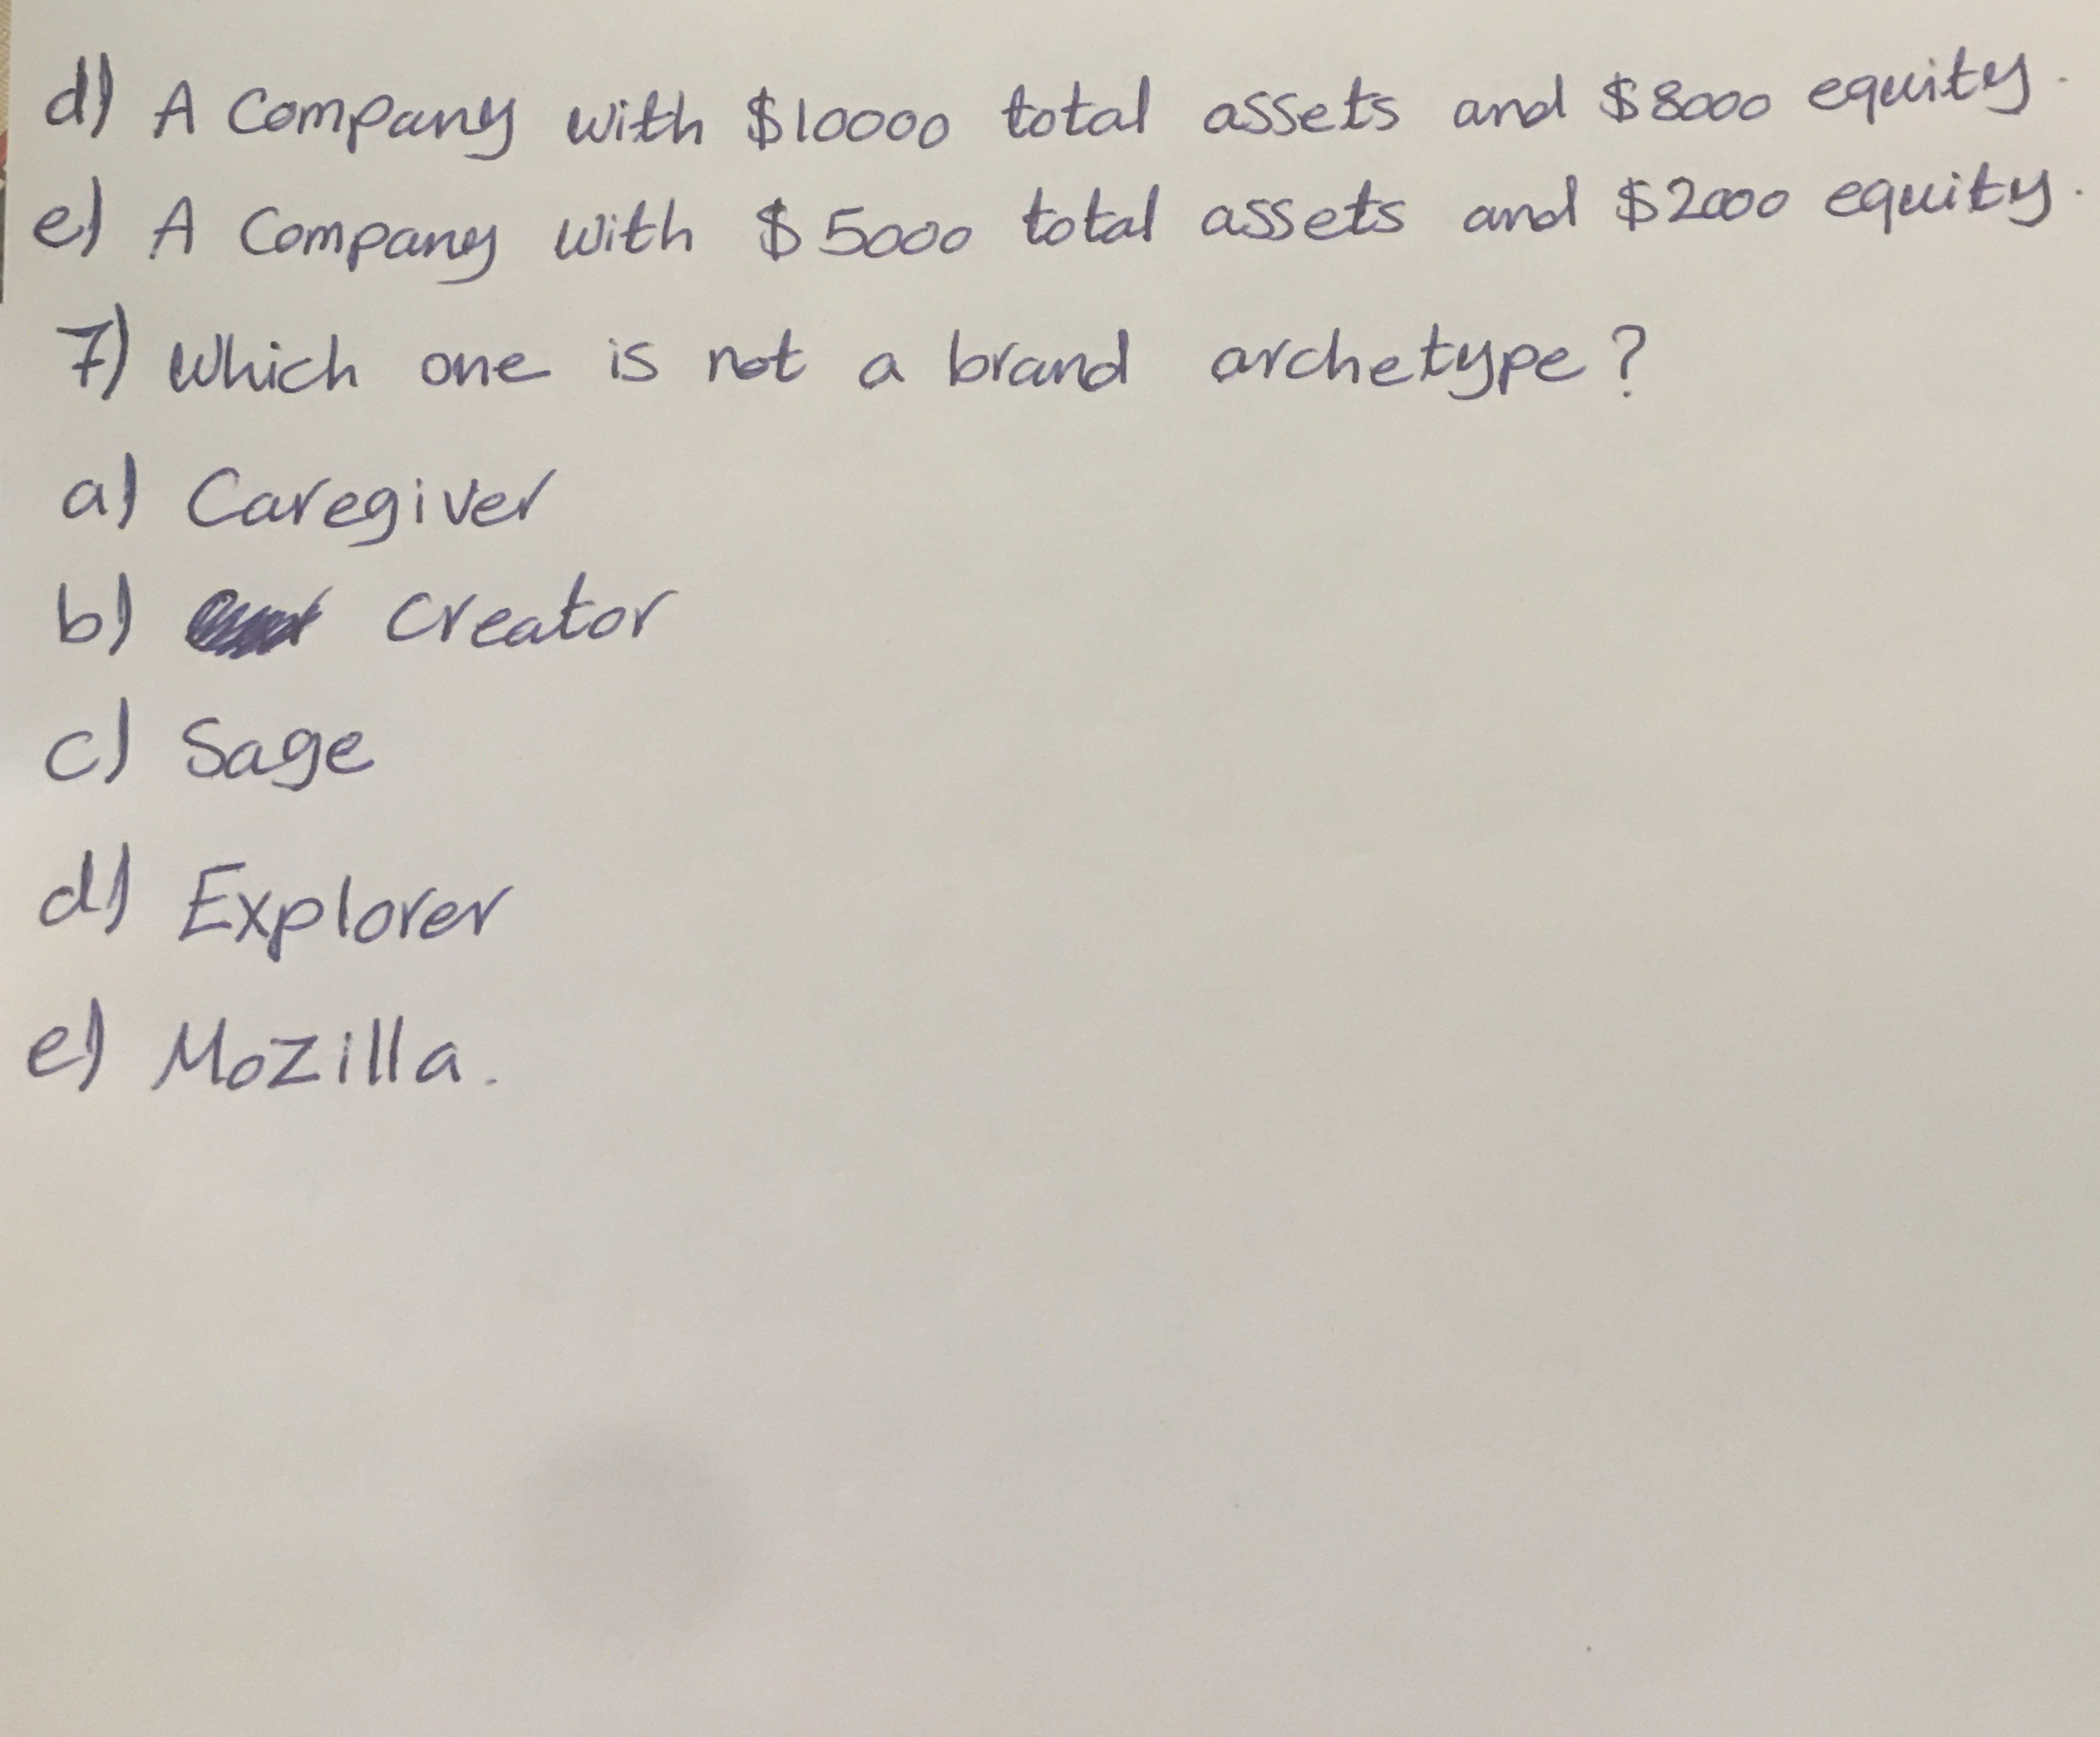 d) A Company with $10000 total assets and $8000 equity.
e) A Company with $5000 total assets and $2000 equity.
7) Which one is not a brand archetype?
a) Caregiver
b) Creator
c) Sage
d) Explorer
e) Mozilla.